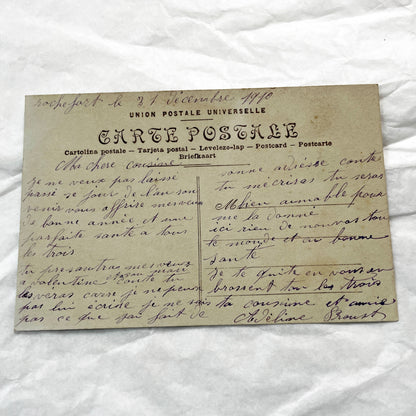 rochefort le 31 décembre 1910
UNION POSTALE UNIVERSELLE
CARTE POSTALE
Cartolina postale — Tarjeta postal — Leveleze-lap — Postcard — Postcarte
Briefkaart
Ma chère cousine
je ne veux pas laissé
passé se jour de l'an sans
venir vous offrire mes vœux
de bonne année et une
parfaite santé a tous
les trois
tu présentras mes veuz
a valentine
veras carre je ne peux
pas lui écrire je ne sais
pas ce que j'ai fait de
sonne adresse
tu mécriras tu seras
bien aimable pour
me la donné
ici rien de nouvos tout
le monde et en bonne
santé
je te quite en vous en
brassent tou les trois
ta cousine et amie
Adéline Proust